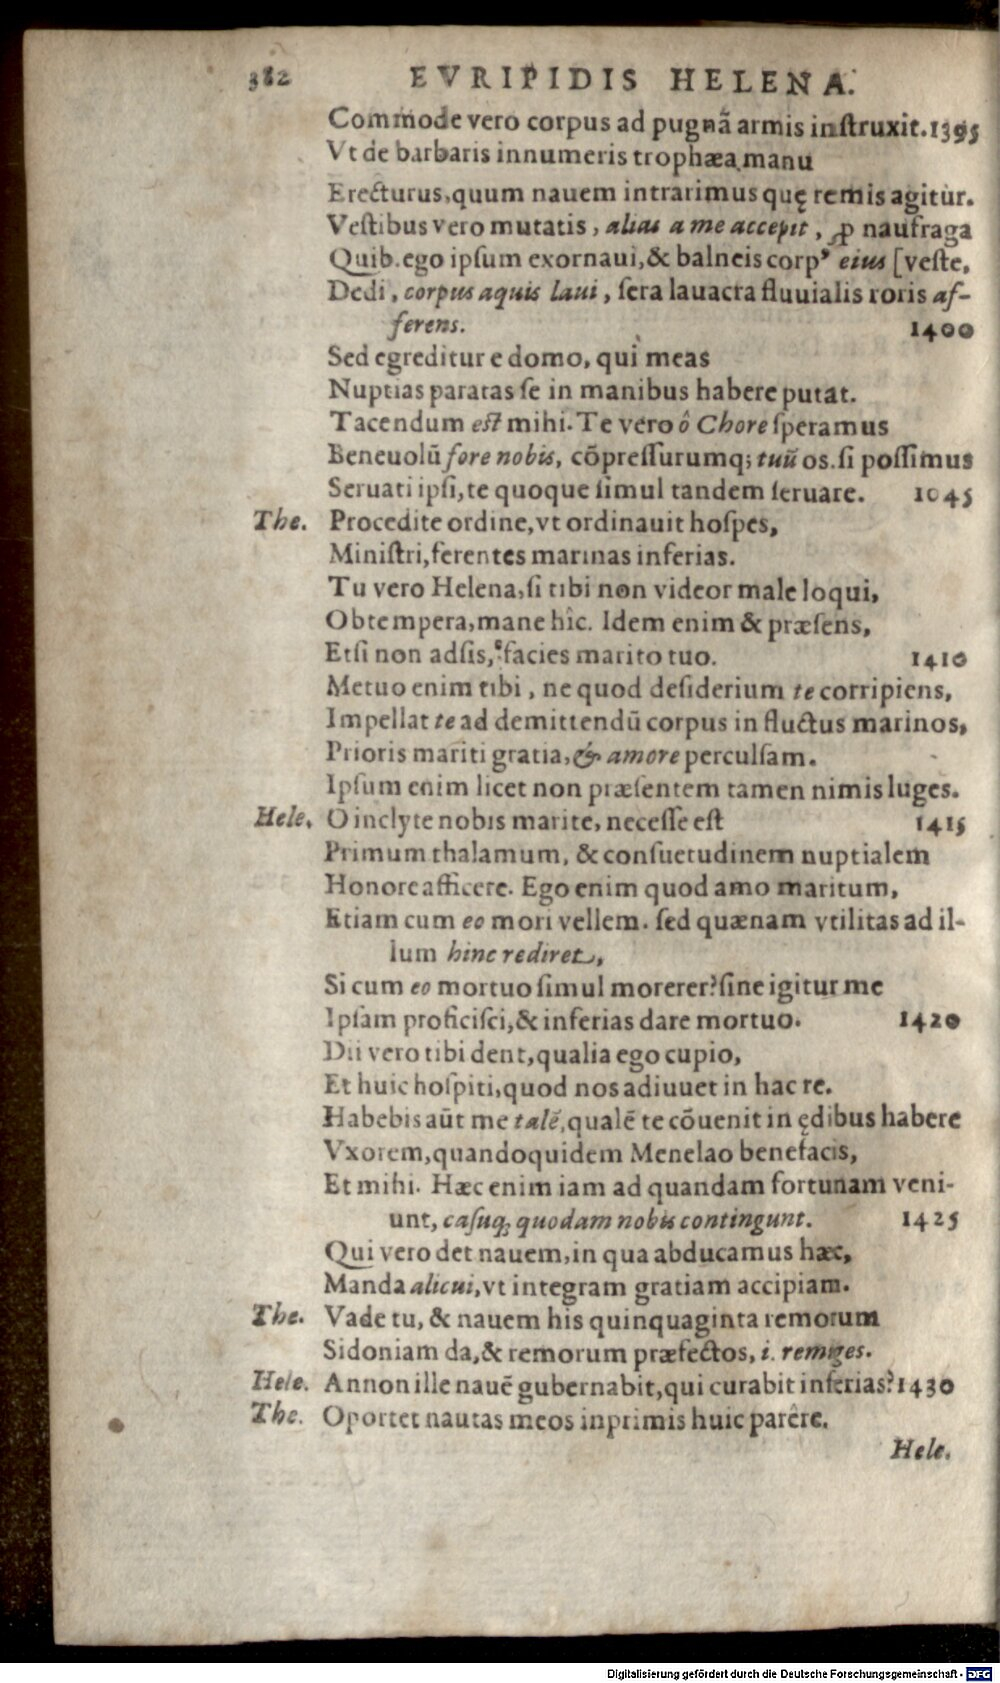 382 EVRIPIDIS HELENA.
Commode vero corpus ad pugnã armis inſtruxit. 1395
Vt de barbaris innumeris trophæa manu
Erecturus, quum nauem intrarimus quę remis agitur.
Veſtibus vero mutatis, alias a me accepit, ꝓ naufraga
Quib. ego ipſum exornaui, & balneis corpꝰ eius [veſte,
Dedi, corpus aquis laui, ſera lauacra fluuialis roris af-
ferens. 1400
Sed egreditur e domo, qui meas
Nuptias paratas ſe in manibus habere putat.
Tacendum eſt mihi. Te vero ô Chore ſperamus
Beneuolũ fore nobis, cõpreſſurumq; tuũ os. ſi poſſimus
Seruati ipſi, te quoque ſimul tandem ſeruare. 1045
The. Procedite ordine, vt ordinauit hoſpes,
Miniſtri, ferentes marinas inferias.
Tu vero Helena, ſi tibi non videor male loqui,
Obtempera, mane hîc. Idem enim & præſens,
Etſi non adſis, facies marito tuo. 1410
Metuo enim tibi, ne quod deſiderium te corripiens,
Impellat te ad demittendũ corpus in fluctus marinos,
Prioris mariti gratia, & amore perculſam.
Ipſum enim licet non præſentem tamen nimis luges.
Hele. O inclyte nobis marite, neceſſe eſt 1415
Primum thalamum, & conſuetudinem nuptialem
Honore afficere. Ego enim quod amo maritum,
Etiam cum eo mori vellem. ſed quænam vtilitas ad il-
lum hinc rediret,
Si cum eo mortuo ſimul morerer? ſine igitur me
Ipſam proficiſci, & inferias dare mortuo. 1420
Dii vero tibi dent, qualia ego cupio,
Et huic hoſpiti, quod nos adiuuet in hac re.
Habebis aũt me talẽ, qualẽ te cõuenit in ędibus habere
Vxorem, quandoquidem Menelao benefacis,
Et mihi. Hæc enim iam ad quandam fortunam veni-
unt, caſuq; quodam nobis contingunt. 1425
Qui vero det nauem, in qua abducamus hæc,
Manda alicui, vt integram gratiam accipiam.
The. Vade tu, & nauem his quinquaginta remorum
Sidoniam da, & remorum præfectos, i. remiges.
Hele. Annon ille nauẽ gubernabit, qui curabit inferias? 1430
The. Oportet nautas meos inprimis huic parêre.
Hele.
Digitalisierung gefördert durch die Deutsche Forschungsgemeinschaft - DFG